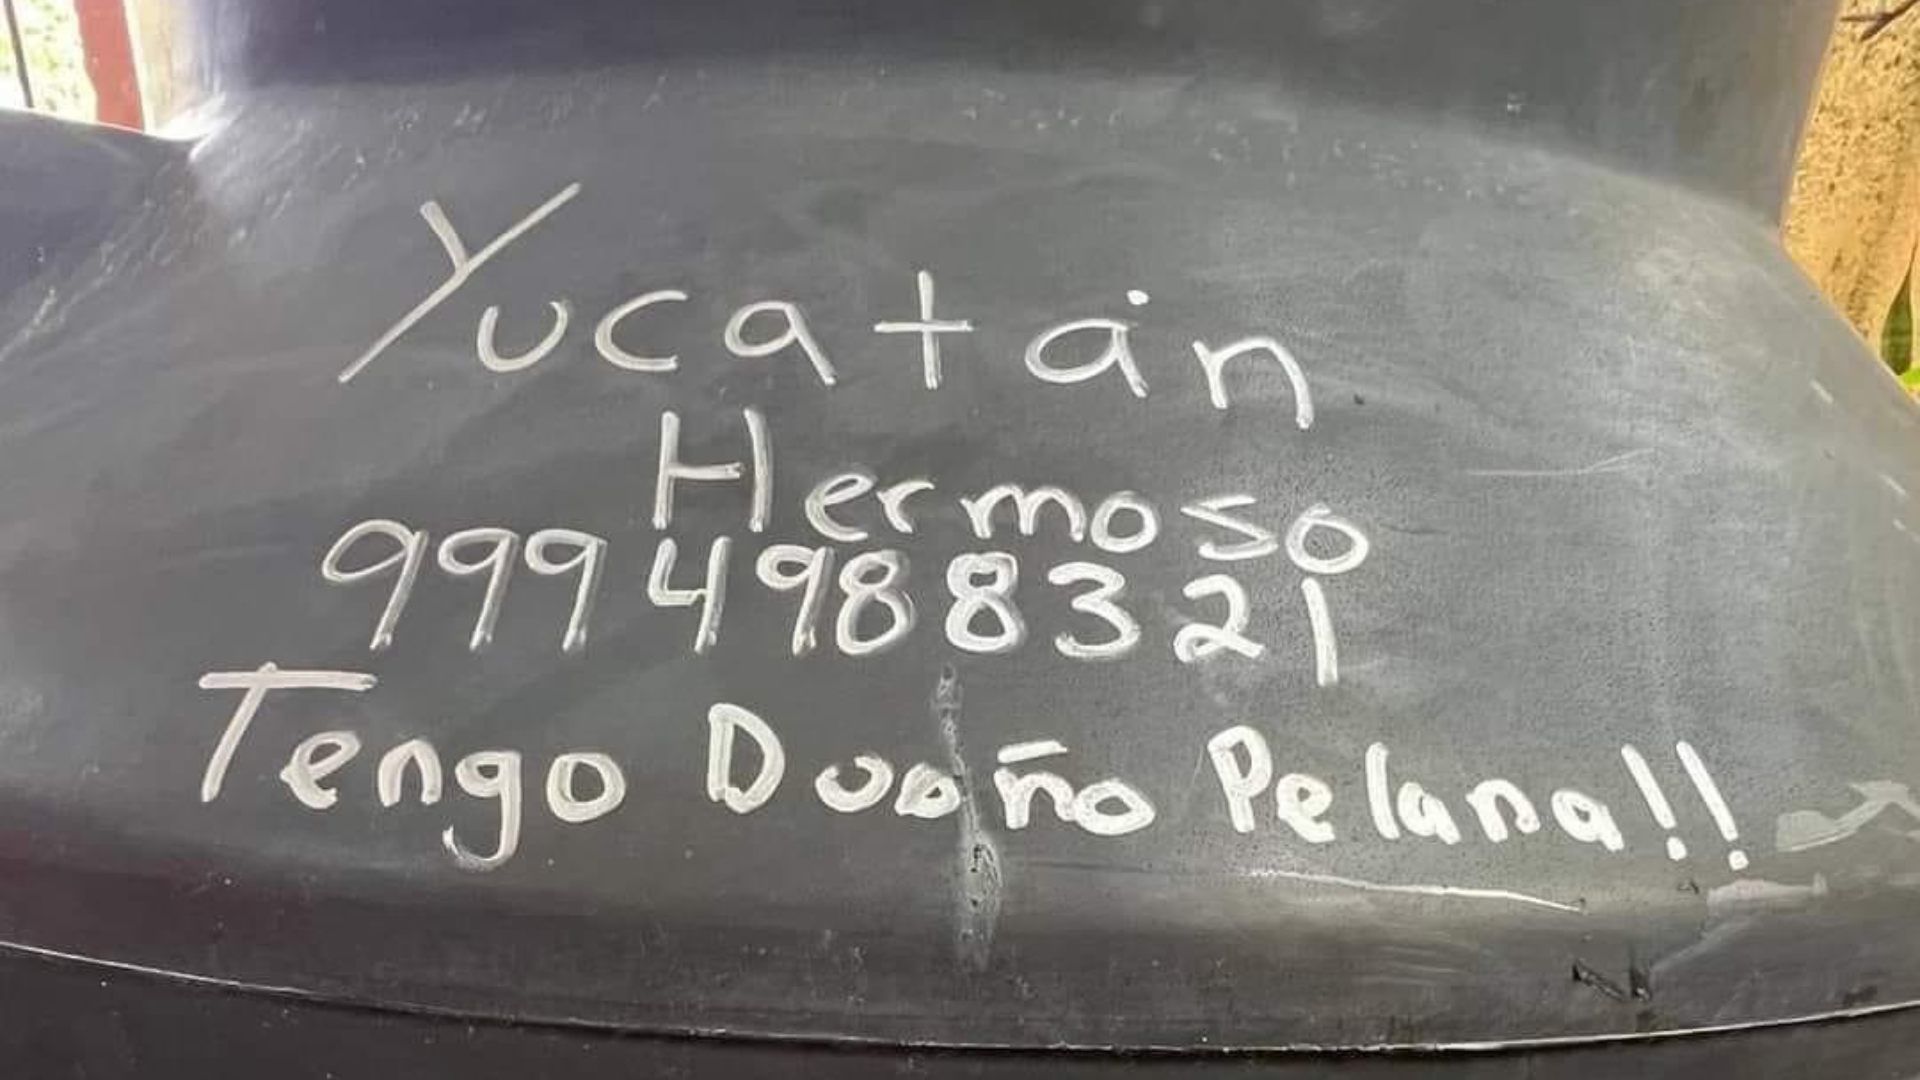 Yucatán
Hermoso
999 4988321
Tengo Dueño Pelana!!